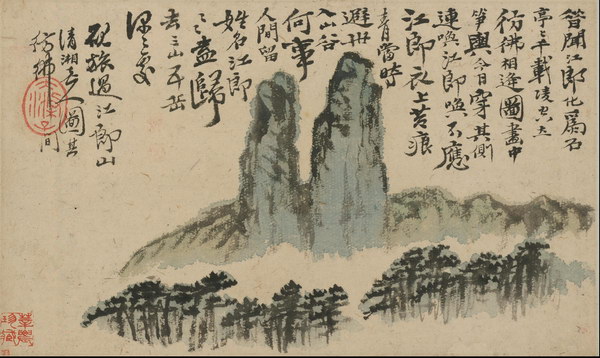 曾聞江郎化爲石
亭〻千載凌空立
彷彿相逢圖畫中
笋輿今日穿其側
連喚江郎喚不應
江郎衣上苔痕
青當時
避世
入山谷
何事
人間留
姓名江郎
〻〻歸
去三山五岳
深〻處
硯旅過江郎山
清湘老人圖其
彷彿間